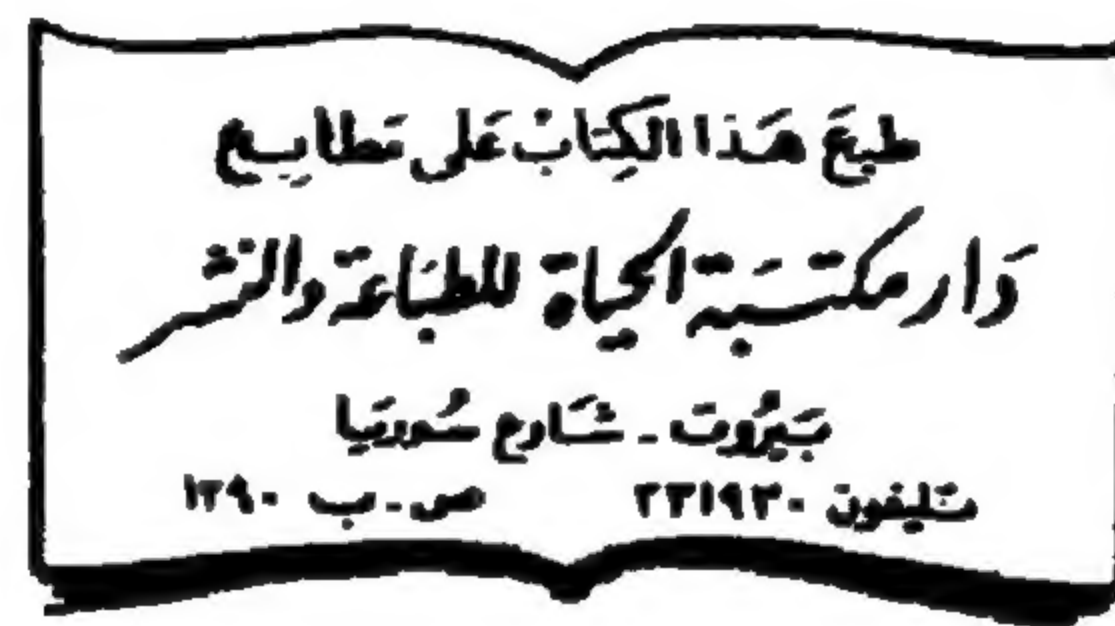 طبعَ هَذا الكِتابْ عَلى مَطابِع
دَار مكتَبَة الحياة للطبَاعَة والنشر
بَيرُوت - شَارع سُوريَا
تليفون ٢٣١٩٣٠ ص.ب ١٣٩٠